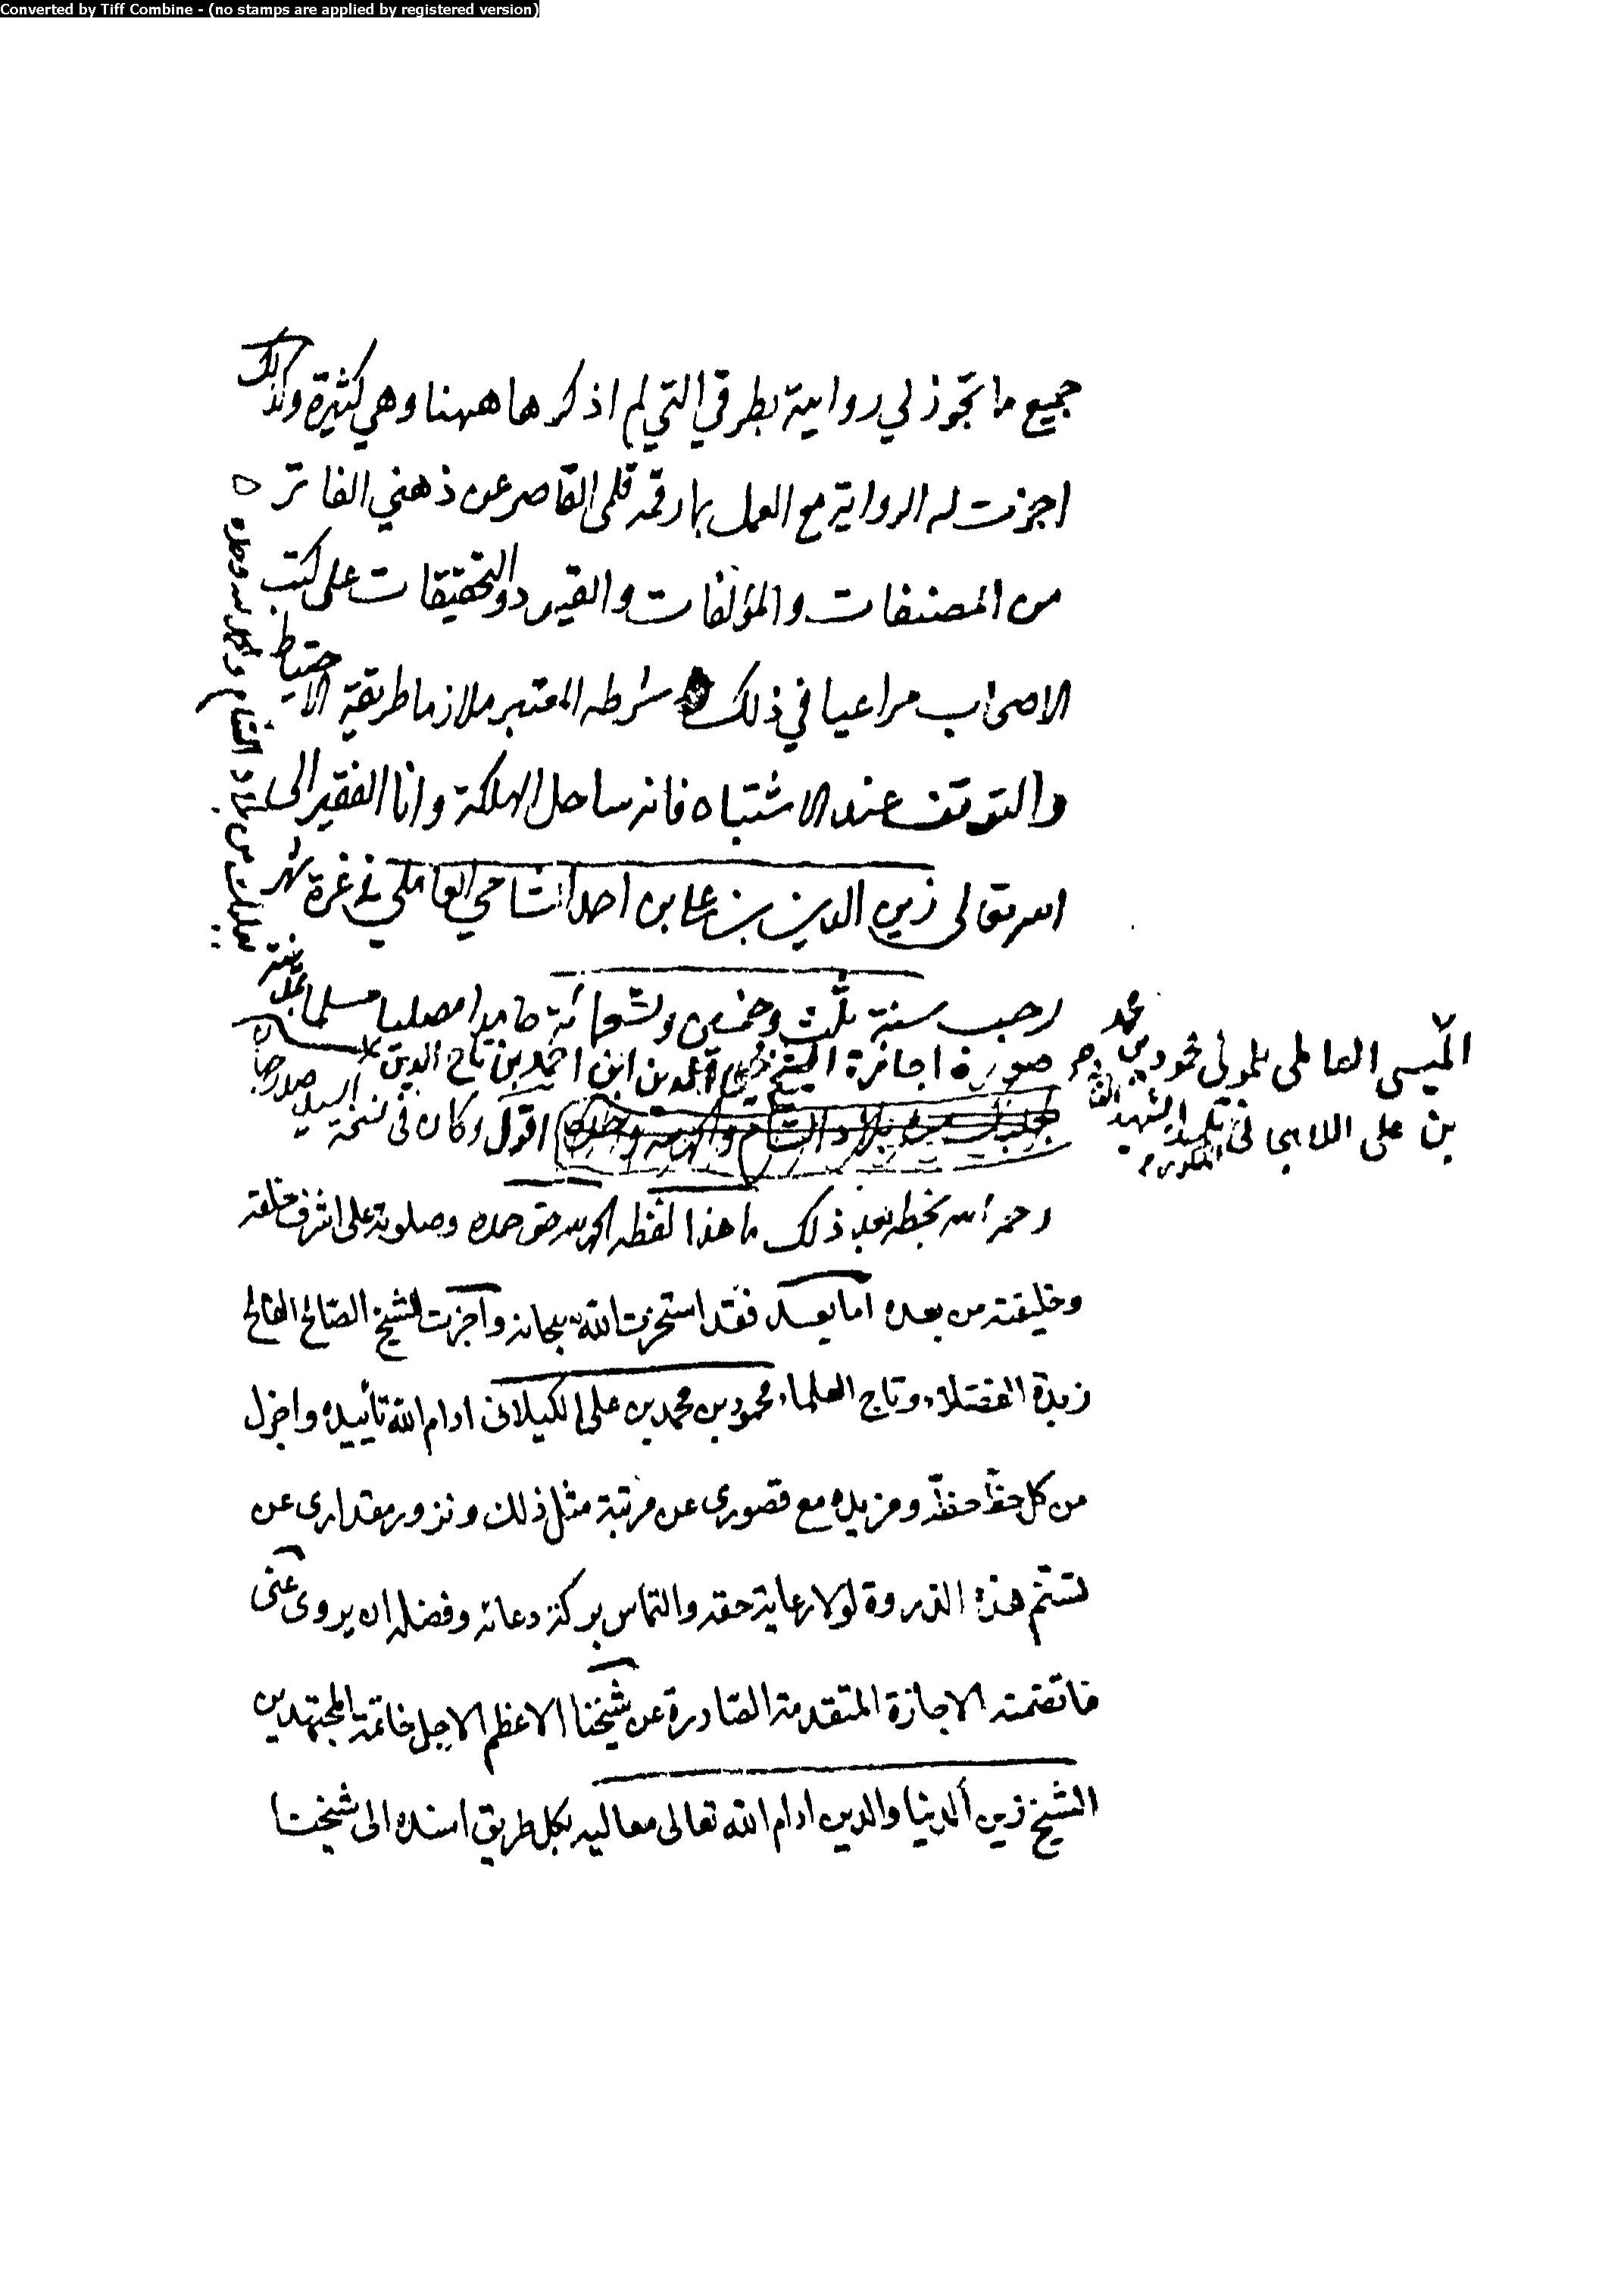 Converted by Tiff Combine - (no stamps are applied by registered version)
جميع ما تجوز لي روايته بطرقي التي لم اذكرها ههنا وهي كثيرة وكذلك
اجزت له الرواية مع العمل بما رقمه قلمى القاصر عن ذهني الفاتر
من المصنفات والمؤلفات والقيود والتحقيقات على كتب
الاصحاب مراعيا في ذلك شرطه المعتبر ملازما طريقة الاحتياط
والتوقف عند الاشتباه فانه ساحل الهلكة وانا الفقير الى
الله تعالى زين الدين بن على بن احمد الشامي العاملي في غرة شهر
رجب سنة ثلث وخمسين وتسعمائة حامدا مصليا مسلما
صورة اجازة الشيخ ابن احمد بن تاج الدين
الميسى العاملى للمولى محمود بن محمد
بن على اللاهجى تلميذ الشهيد
اقول وكان فى نسخة السيد
رحمه الله بخطه بعد ذلك ما هذا لفظه الحمد لله حق حمده وصلوته على اشرف خلقه
وخليفته من بعده اما بعد فقد استخرت الله سبحانه واجزت للشيخ الصالح الفالح
زبدة الفضلاء وتاج العلماء محمود بن محمد بن على الكيلانى ادام الله تأييده واجزل
من كل حظ حفظه ومزيده مع قصورى عن مرتبة مثل ذلك ونزور مقدارى عن
تسنم هذه الذروة لولا رعاية حقه والتماس بركة دعائه وفضله ان يروى عنى
ما تضمنته الاجازة المتقدمة الصادرة عن شيخنا الاعظم الاجل خاتمة المجتهدين
الشيخ زين الدنيا والدين ادام الله تعالى معاليه بكل طريق اسنده الى شيخنا